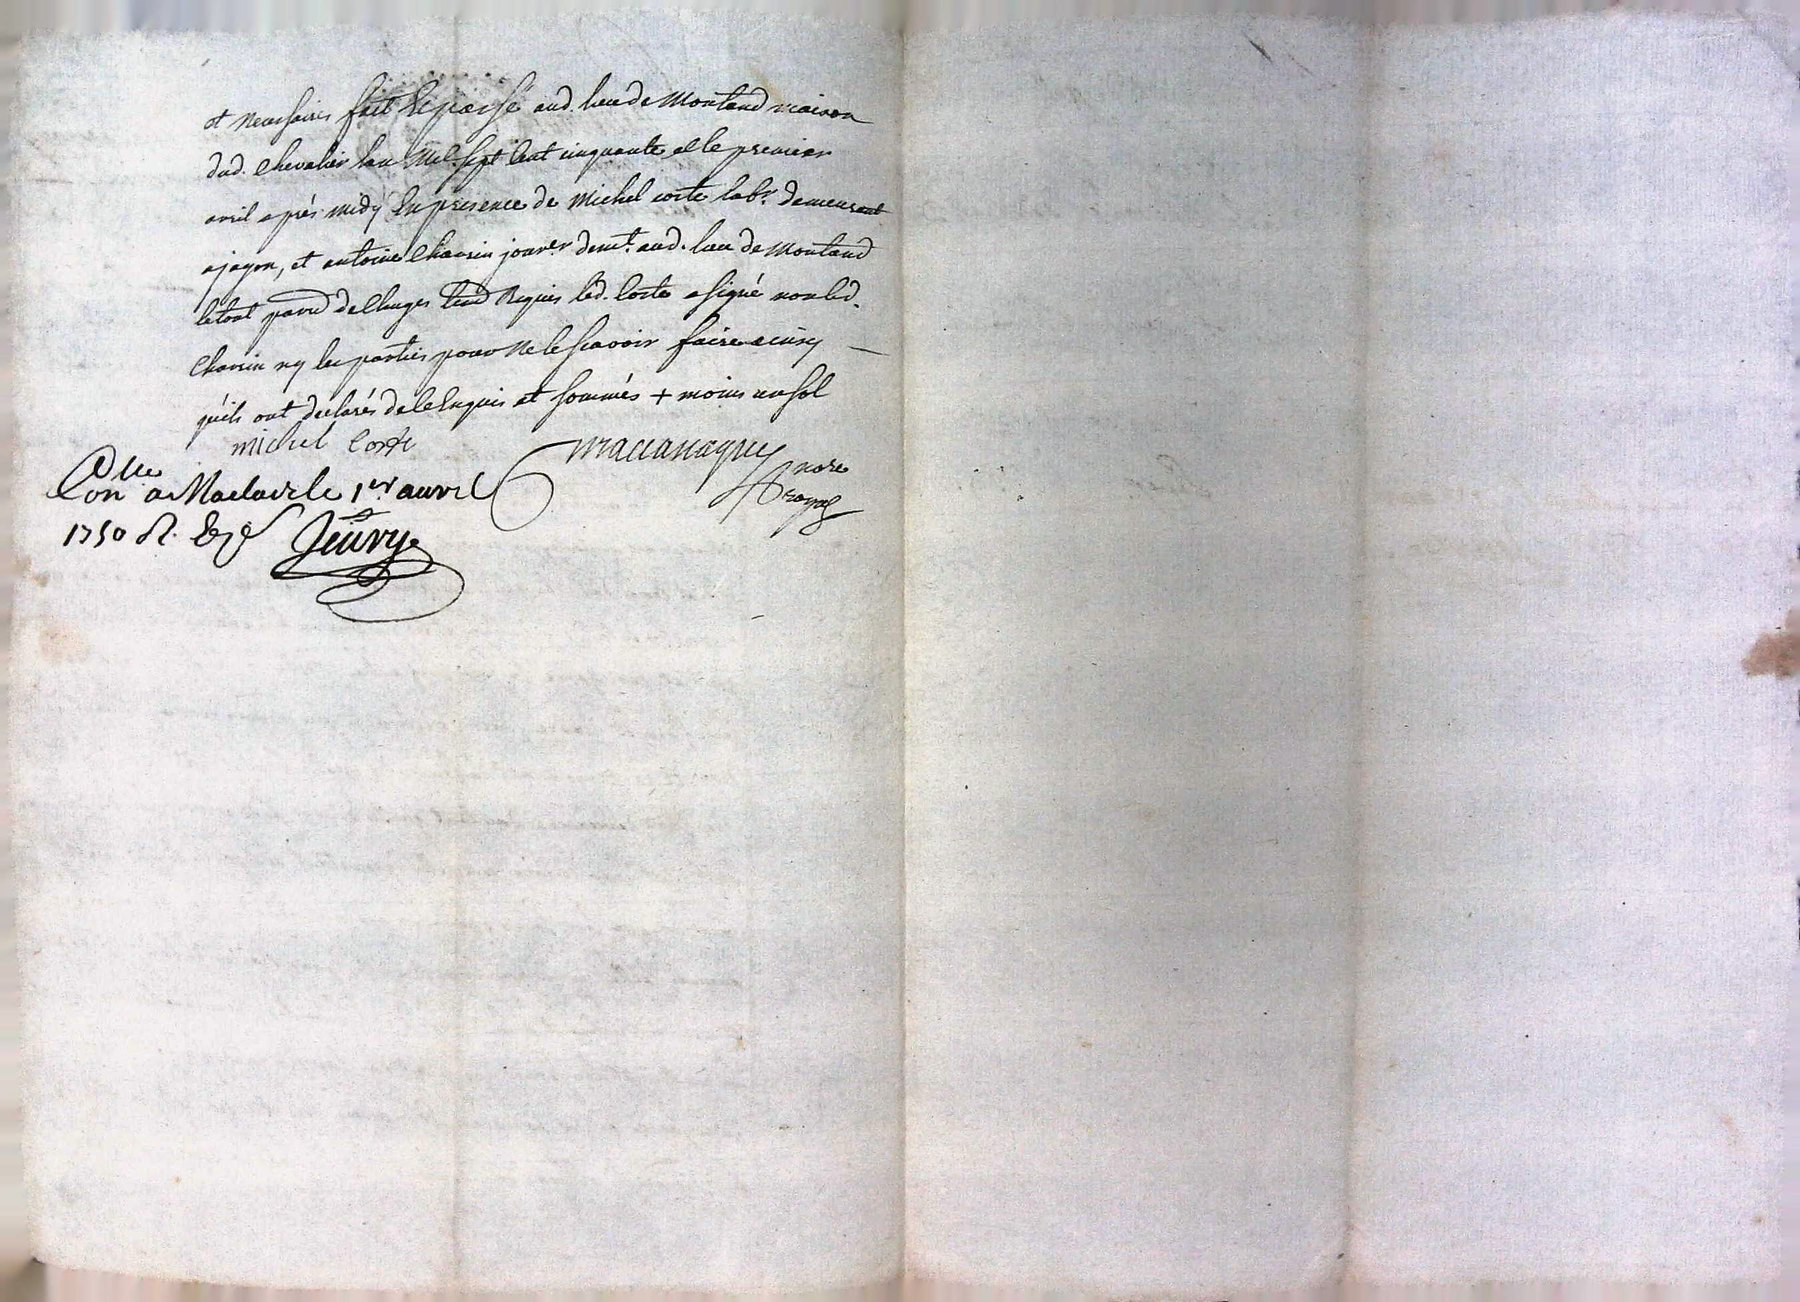 et necessaires fait & passé aud. lieu de Montaud maison
dud. Chevalier lan Mil sept Cent cinquante et le premier
avril après midy En presence de Michel coste labr. demeurant
a jayon, et antoine Chausin jourer demt. aud. lieu de Montaud
le tout de Requis led. Coste a signé non led.
Chausin ny les parties pour Ne le scavoir faire ainsy
quils ont declarés de ce Enquis et sommés + moins un sol
michel Coste
nore
royal
Con a Maclas le 1er avril
1750 R.
Jeuvry